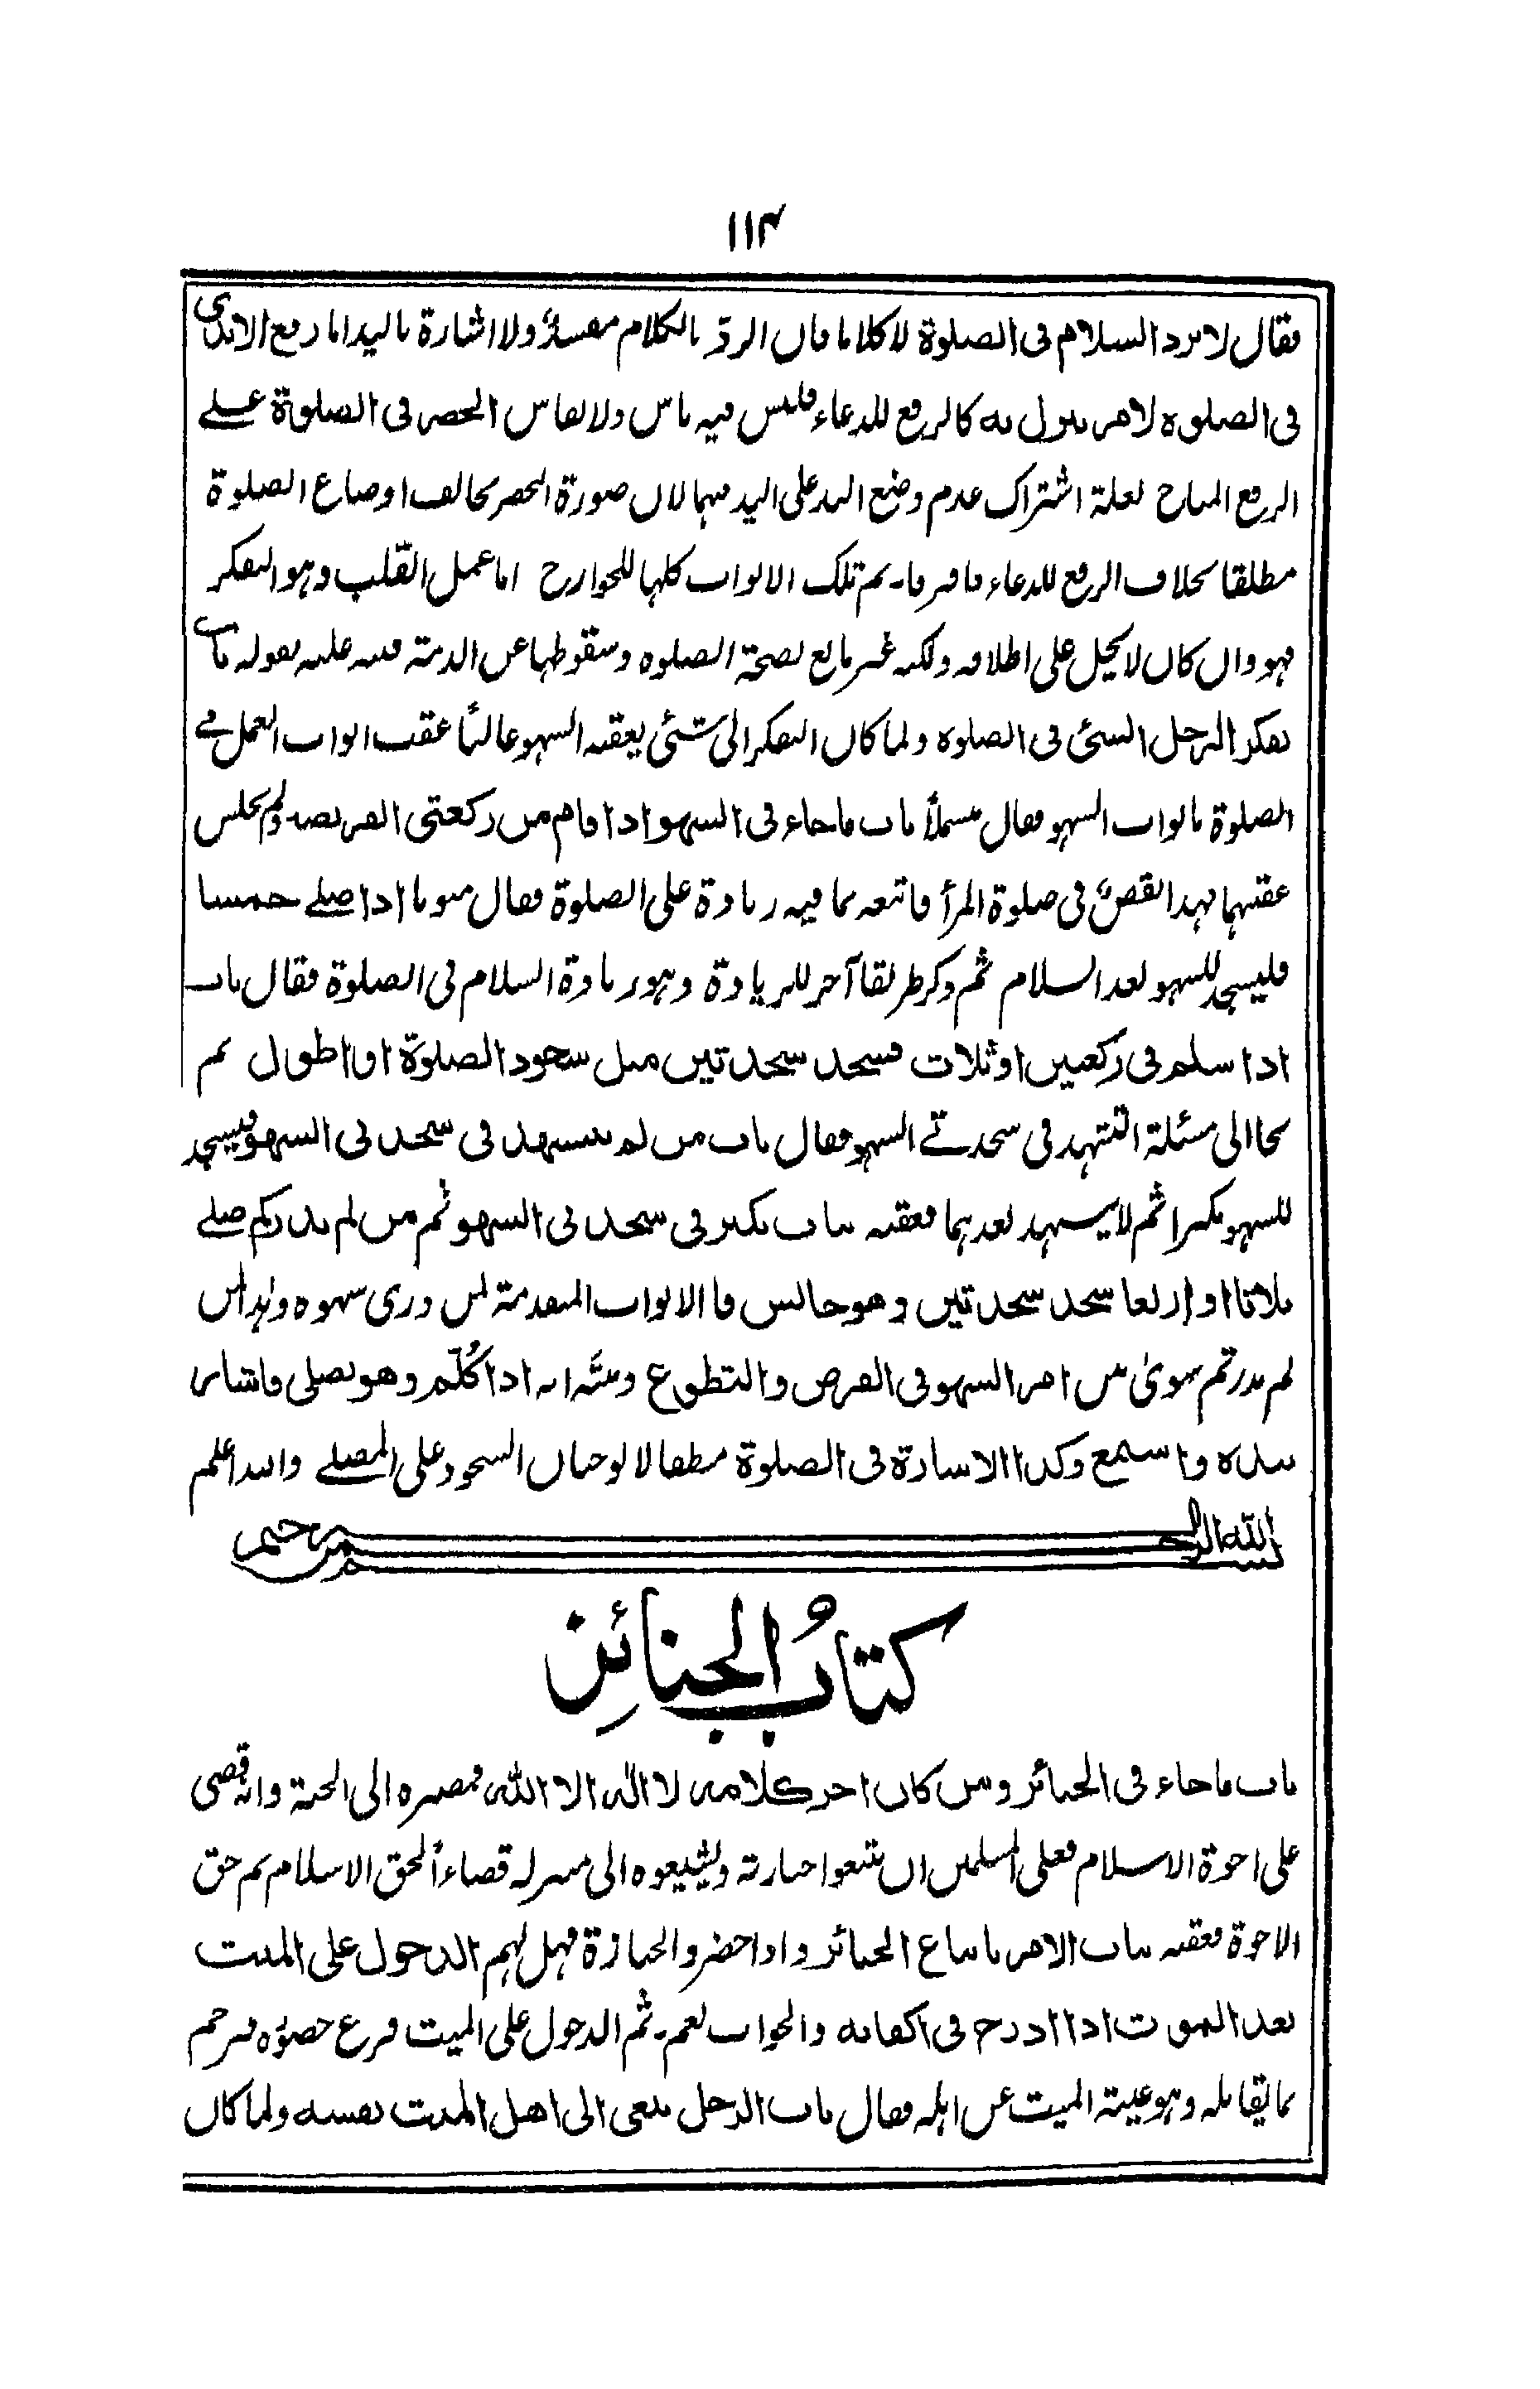 ١١٤
فقال لا يرد السلام فى الصلوة لا كلاما فان الرد بالكلام مفسد ولا اشارة باليد اما رفع الايدى
فى الصلوة لامر ينزل به كالرفع للدعاء فليس فيه باس ولا يقاس الخصر فى الصلوة على
الرفع المباح لعلة اشتراك عدم وضع اليد على اليد فيهما لان صورة الخصر تخالف اوضاع الصلوة
مطلقا بخلاف الرفع للدعاء فافترقا۔ ثم تلك الابواب كلها للجوارح اما عمل القلب وهو التفكر
فهو وان كان لا يخل على اطلاقه ولكنه غير مانع لصحة الصلوة وسقوطها عن الذمة فنبه عليه بقوله باب
تفكر الرجل الشئ فى الصلوة ولما كان التفكر الى شئ يعقبه السهو غالبًا عقب ابواب العمل فى
الصلوة بابواب السهو فقال مبسملاً باب ما جاء فى السهو اذا قام من ركعتى الفريضة ولم يجلس
عقبهما فهذا نقص فى صلوة المرأ فاتبعه بما فيه زيادة على الصلوة فقال مبوبا اذا صلے خمسا
فليسجد للسهو بعد السلام ثم ذكر طريقا آخر للزيادة وهو زيادة السلام فى الصلوة فقال باب
اذا سلم فى ركعتين او ثلاث فسجد سجدتين مثل سجود الصلوة او اطول ثم
نحا الى مسئلة التشهد فى سجدتے السهو فقال باب من لم يتشهد فى سجدتى السهو فيسجد
للسهو مكبرا ثم لا يتشهد بعدهما فعقبه بباب يكبر فى سجدتى السهو ثم من لم يدر كم صلے
ثلاثا او اربعا سجد سجدتين وهو جالس فالابواب المتقدمة لمن درى سهوه وهذا لمن
لم يدر ثم سوىٰ بين امر السهو فى الفرض والتطوع وبين انه اذا كُلّم وهو يصلى فاشار
بيده واستمع وكذا الاشارة فى الصلوة مطلقا لا يوجبان السجود على المصلے والله اعلم
بسم الله الرحمن الرحيم
كتابُ الجنائزِ
باب ما جاء فى الجنائز ومن كان اخر كلامه لا اله الا الله فمصيره الى الجنة وانه قضى
على اخوة الاسلام فعلى المسلمين ان يتبعوا جنازته ويشيعوه الى منزله قضاءً لحق الاسلام ثم حق
الاخوة فعقبه بباب الامر باتباع الجنائز واذا حضروا الجنازة فهل لهم الدخول على الميت
بعد الموت اذا ادرج فى اكفانه والجواب نعم۔ ثم الدخول على الميت فرع حضوره فترجم
بما يقابله وهو غيبة الميت عن اهله فقال باب الرجل ينعى الى اهل الميت بنفسه ولما كان